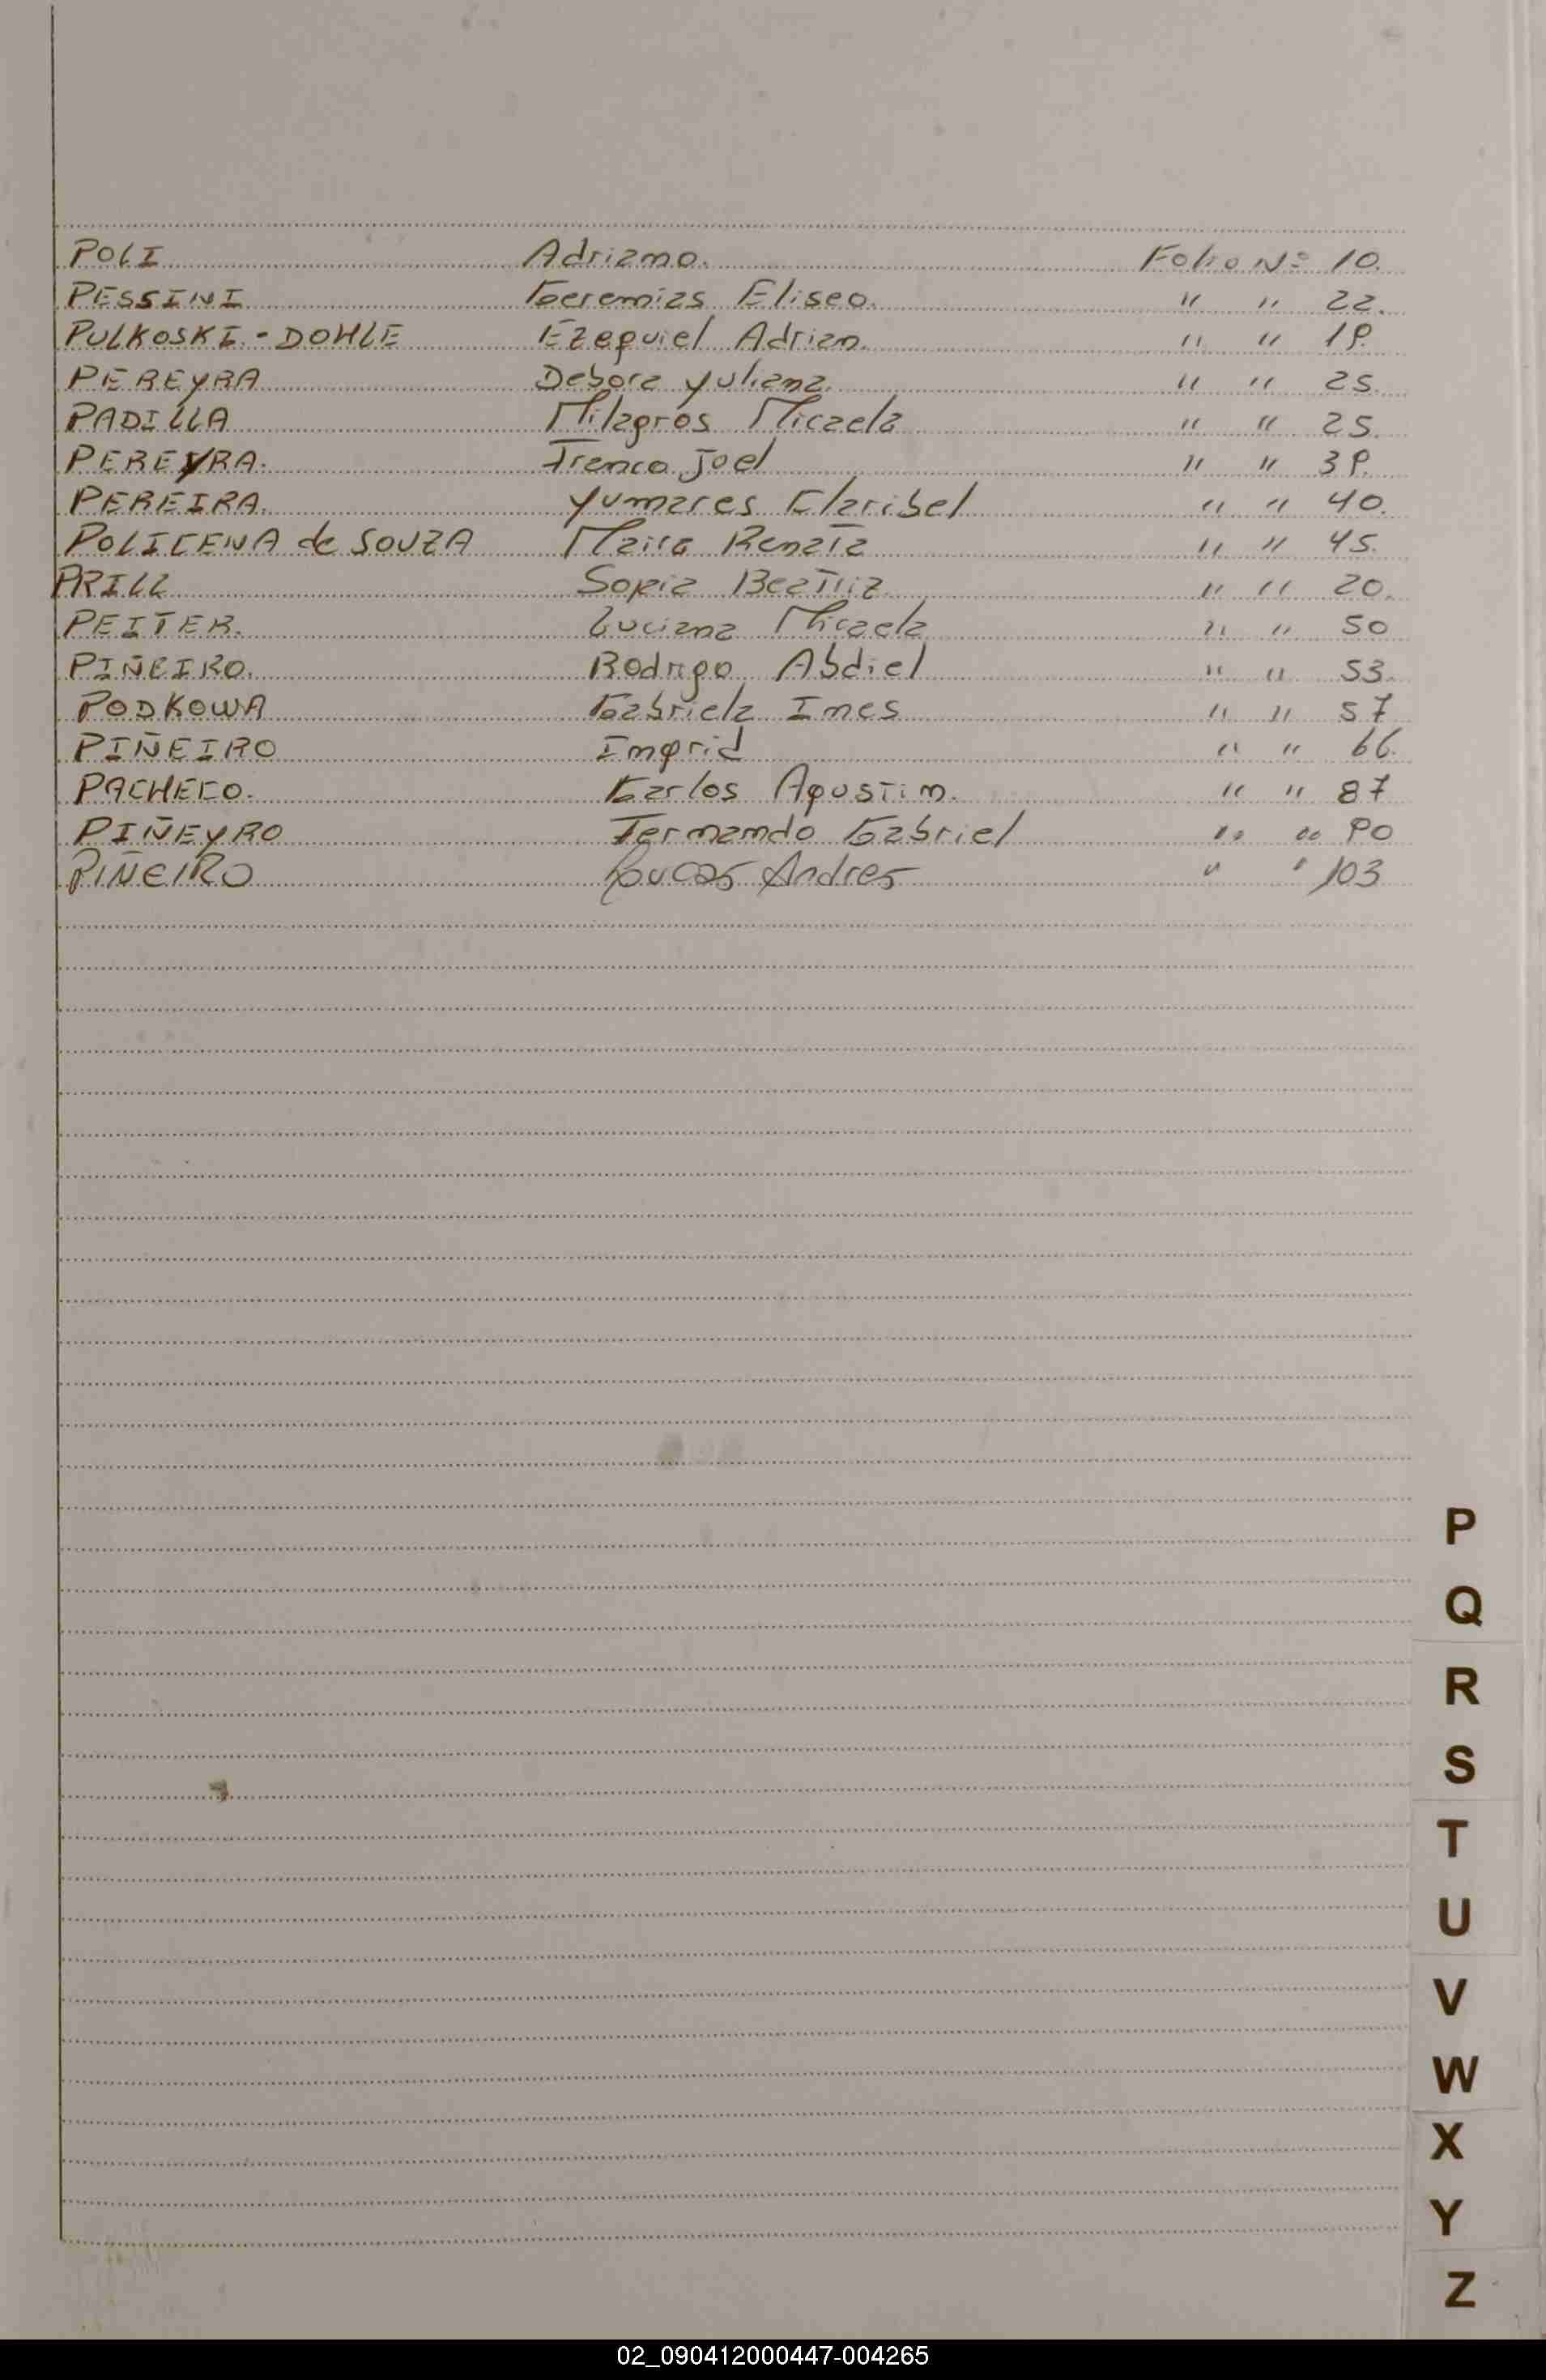 POLI Adriano. Folio Nº 10.
PESSINI Geremias Eliseo. " " 22.
PULKOSKI - DOHLE Ezequiel Adrian. " " 19.
PEREYRA Debora Yuliana. " " 25.
PADILLA Milagros Micaela " " 25.
PEREYRA. Franco Joel " " 39.
PEREIRA. Yumares Claribel " " 40.
POLICENA de SOUZA Maira Renata " " 45.
PRILL Sofia Beatriz. " " 20.
PEITER. Luciana Micaela " " 50
PIÑEIRO. Rodrigo Abdiel " " 53.
PODKOWA Gabriela Ines " " 57
PIÑEIRO Ingrid " " 66.
PACHECO. Carlos Agustin. " " 87
PIÑEYRO Fernando Gabriel " " 90
PIÑEIRO Lucas Andres " " 103
P
Q
R
S
T
U
V
W
X
Y
Z
02_090412000447-004265